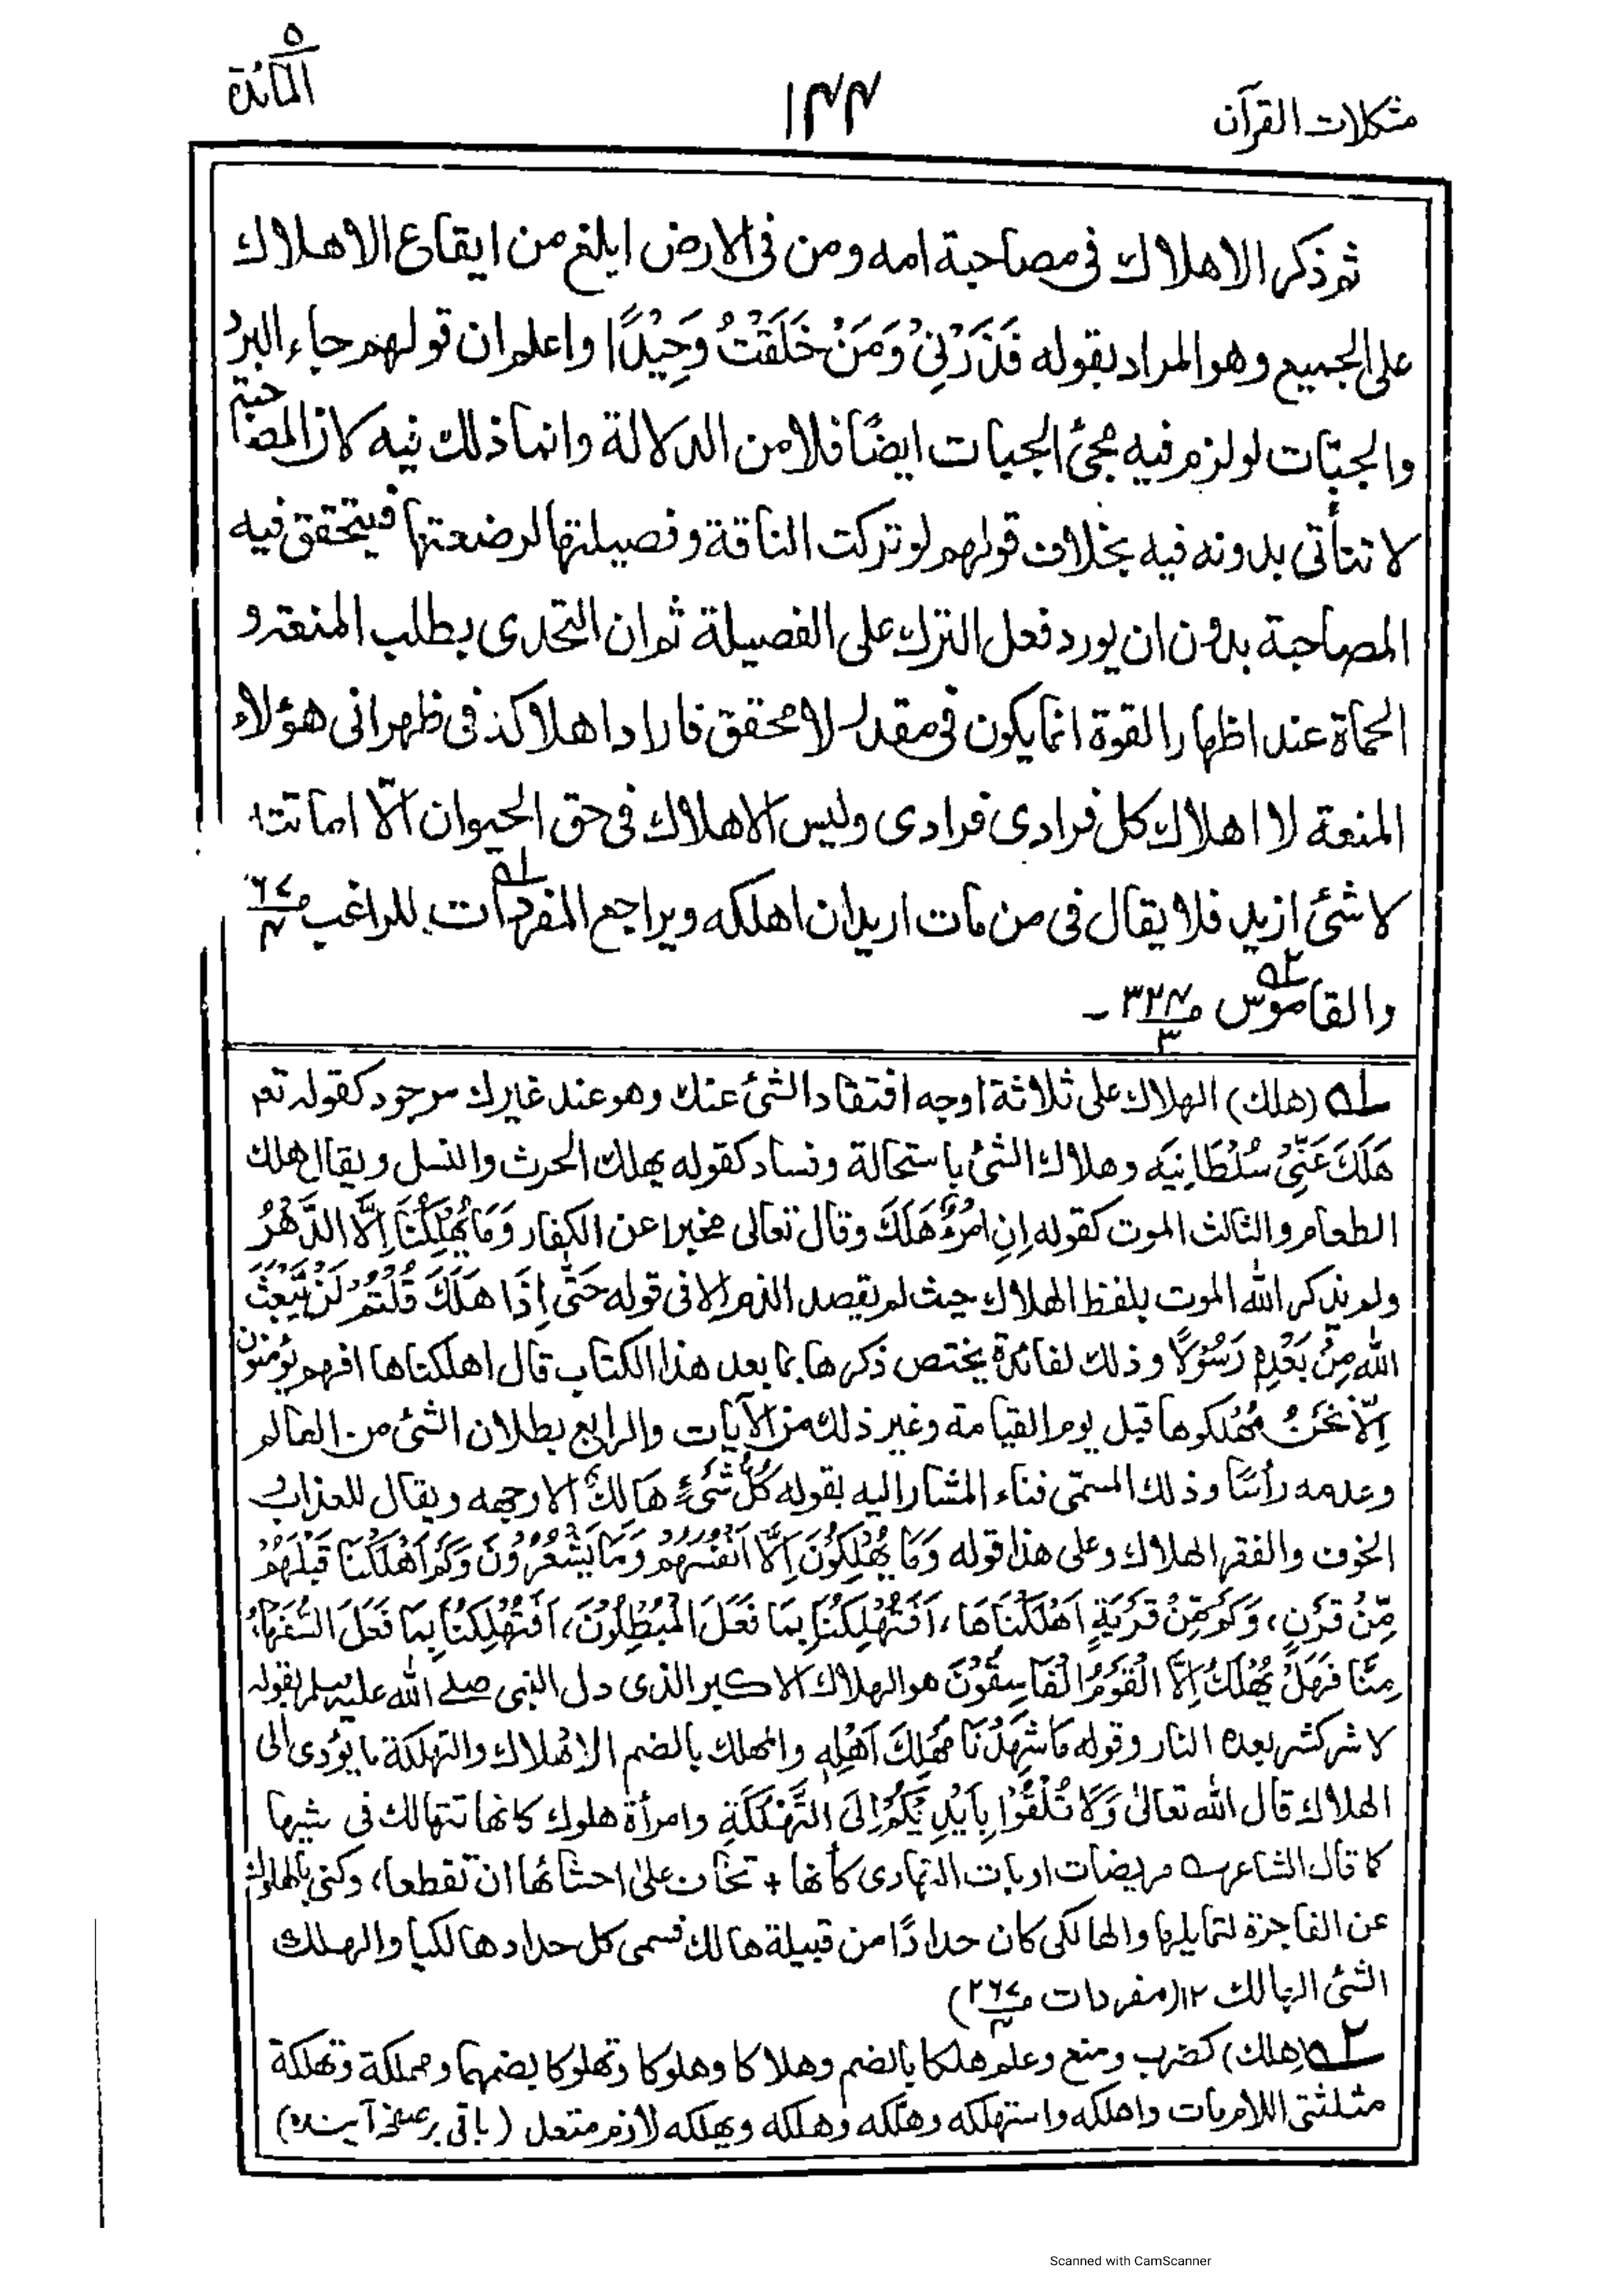 مشكلات القرآن
١٤٤
٥
المائدة
ثم ذكر الاهلاك فى مصاحبة امه ومن فى الارض ابلغ من ايقاع الاهلاك
على الجميع وهو المراد بقوله فَذَرْنِىْ وَمَنْ خَلَقْتُ وَحِيْدًا واعلم ان قولهم جاء البرد
والجبّات لو لزم فيه مجئ الجبات ايضًا فلا من الدلالة وانما ذلك فيه لان المصاحبة
لا تتأتى بدونه فيه بخلاف قولهم لو تركت الناقة وفصيلتها لرضعتها فيتحقق فيه
المصاحبة بدون ان يورد فعل الترك على الفصيلة ثم ان التحدى بطلب المنعة و
الحماة عند اظهار القوة انما يكون فى مقدر لا محقق فاراد اهلاكه فى ظهرانى هؤلاء
المنعة لا اهلاك كل فرادى فرادى وليس الاهلاك فى حق الحيوان الّا اماتته
لا شئ ازيد فلا يقال فى من مات اريد ان اهلكه ويراجع المفردات ١ للراغب
والقاموس ٢ ص٣٢٤/٣ ـ
١ (هلك) الهلاك على ثلاثة اوجه افتقاد الشئ عنك وهو عند غيرك موجود كقوله تعم
هَلَكَ عَنِّىْ سُلْطَانِيَه وهلاك الشئ باستحالة وفساد كقوله يهلك الحرث والنسل ويقال هلك
الطعام والثالث الموت كقوله اِنِ امْرُؤٌ هَلَكَ وقال تعالى مخبرا عن الكفار وَمَا يُهْلِكُنَا اِلَّا الدَّهْرُ
ولم يذكر الله الموت بلفظ الهلاك حيث لم يقصد الذم الا فى قوله حَتّٰى اِذَا هَلَكَ قُلْتُمْ لَنْ يَّبْعَثَ
اللّٰه مِنْ بَعْدِهٖ رَسُوْلًا وذلك لفائدة يختص ذكرها بما بعد هذا الكتاب قال اهلكناها افهم يؤمنون
اِلَّا نَحْنُ مُهْلكوها قبل يوم القيامة وغير ذلك من الآيات والرابع بطلان الشئ من العالم
وعدمه رأسًا وذلك المسمّى فناء المشار اليه بقوله كُلُّ شَىْءٍ هَالِكٌ الا وجهه ويقال للعذاب و
الخوف والفقر الهلاك وعلى هذا قوله وَمَا يُهْلِكُوْنَ اِلَّا اَنْفُسَهُمْ وَمَا يَشْعُرُوْنَ وَكَمْ اَهْلَكْنَا قَبْلَهُمْ
مِّنْ قَرْنٍ، وَكَمْ مِّنْ قَرْيَةٍ اَهْلَكْنَاهَا، اَفَتُهْلِكُنَا بِمَا فَعَلَ الْمُبْطِلُوْنَ، اَفَتُهْلِكُنَا بِمَا فَعَلَ السُّفَهَاءُ
مِنَّا فَهَلْ يُهْلَكُ اِلَّا الْقَوْمُ الْفَاسِقُوْنَ هو الهلاك الاكبر الذى دل النبى صلے الله عليه وسلم بقوله
لا شر كشر بعده النار وقوله مَا شَهِدْنَا مَهْلِكَ اَهْلِهٖ والهلك بالضم الاهلاك والتهلكة ما يؤدى الى
الهلاك قال الله تعالىٰ وَلَا تُلْقُوْا بِاَيْدِيْكُمْ اِلَى التَّهْلُكَةِ وامرأة هلوك كانها تتهالك فى شيها
كما قال الشاعر مريضات اوبات التهادى كأنها + تخاف على احشائها ان تقطعا، وكنى بالهلوك
عن الفاجرة لتمايلها والهالكى كان حدادًا من قبيلة هالك فسمى كل حداد هالكيا والهلك
الشئ الهالك ١٢ (مفردات)
٢ (هلك) كضرب ومنع وعلم هلكا بالضم وهلاكا وهلوكا وتهلوكا بضمهما ومهلكة وتهلكة
مثلثتى اللام مات واهلكه واستهلكه وهلّكه وهلكه ويهلكه لازم متعد (باقى بر صفحہ آيندہ)
Scanned with CamScanner